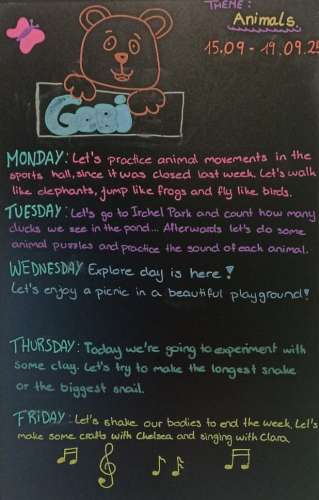 THEME:
Animals.
15.09 - 19.09.25
Gogi
MONDAY: Let's practice animal movements in the
sports hall, since it was closed last week. Let's walk
like elephants, jump like frogs and fly like birds.
TUESDAY: Let's go to Irchel Park and count how many
ducks we see in the pond... Afterwards let's do some
animal puzzles and practice the sound of each animal.
WEDNESDAY Explore day is here!
Let's enjoy a picnic in a beautiful playground!
THURSDAY: Today we're going to experiment with
some clay. Let's try to make the longest snake
or the biggest snail.
FRIDAY: Let's shake our bodies to end the week. Let's
make some crafts with Chelsea and singing with Clara.